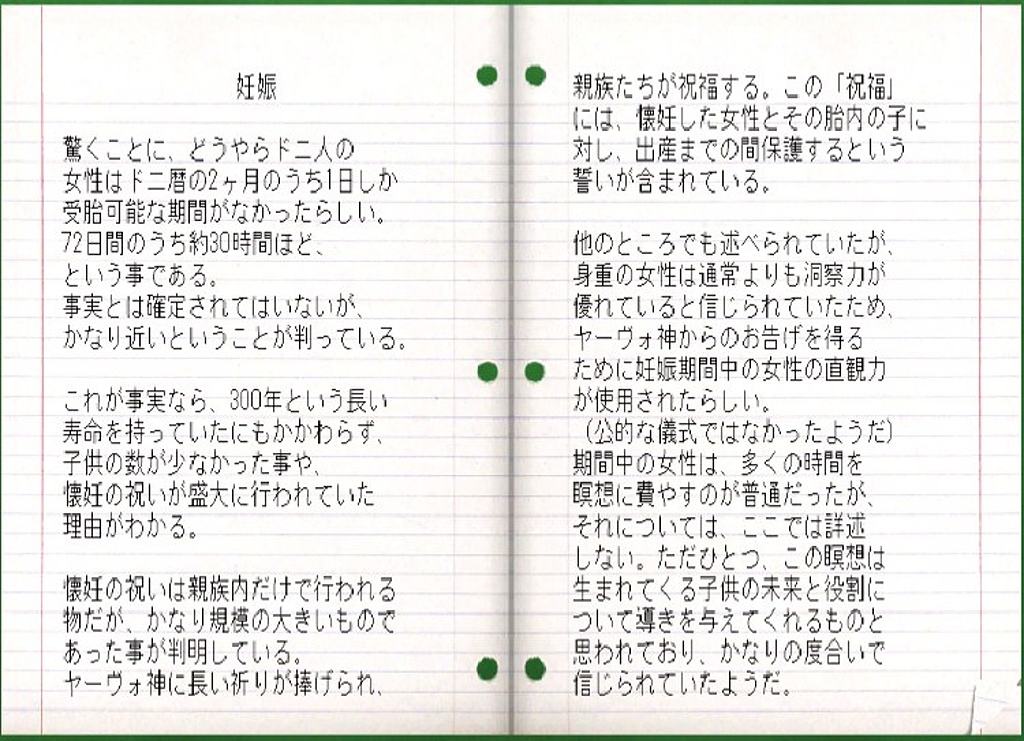 妊娠
驚くことに、どうやらドニ人の
女性はドニ暦の2ヶ月のうち1日しか
受胎可能な期間がなかったらしい。
72日間のうち約30時間ほど、
という事である。
事実とは確定されてはいないが、
かなり近いということが判っている。
これが事実なら、300年という長い
寿命を持っていたにもかかわらず、
子供の数が少なかった事や、
懐妊の祝いが盛大に行われていた
理由がわかる。
懐妊の祝いは親族内だけで行われる
物だが、かなり規模の大きいもので
あった事が判明している。
ヤーヴォ神に長い祈りが捧げられ、
親族たちが祝福する。この「祝福」
には、懐妊した女性とその胎内の子に
対し、出産までの間保護するという
誓いが含まれている。
他のところでも述べられていたが、
身重の女性は通常よりも洞察力が
優れていると信じられていたため、
ヤーヴォ神からのお告げを得る
ために妊娠期間中の女性の直観力
が使用されたらしい。
（公的な儀式ではなかったようだ）
期間中の女性は、多くの時間を
瞑想に費やすのが普通だったが、
それについては、ここでは詳述
しない。ただひとつ、この瞑想は
生まれてくる子供の未来と役割に
ついて導きを与えてくれるものと
思われており、かなりの度合いで
信じられていたようだ。